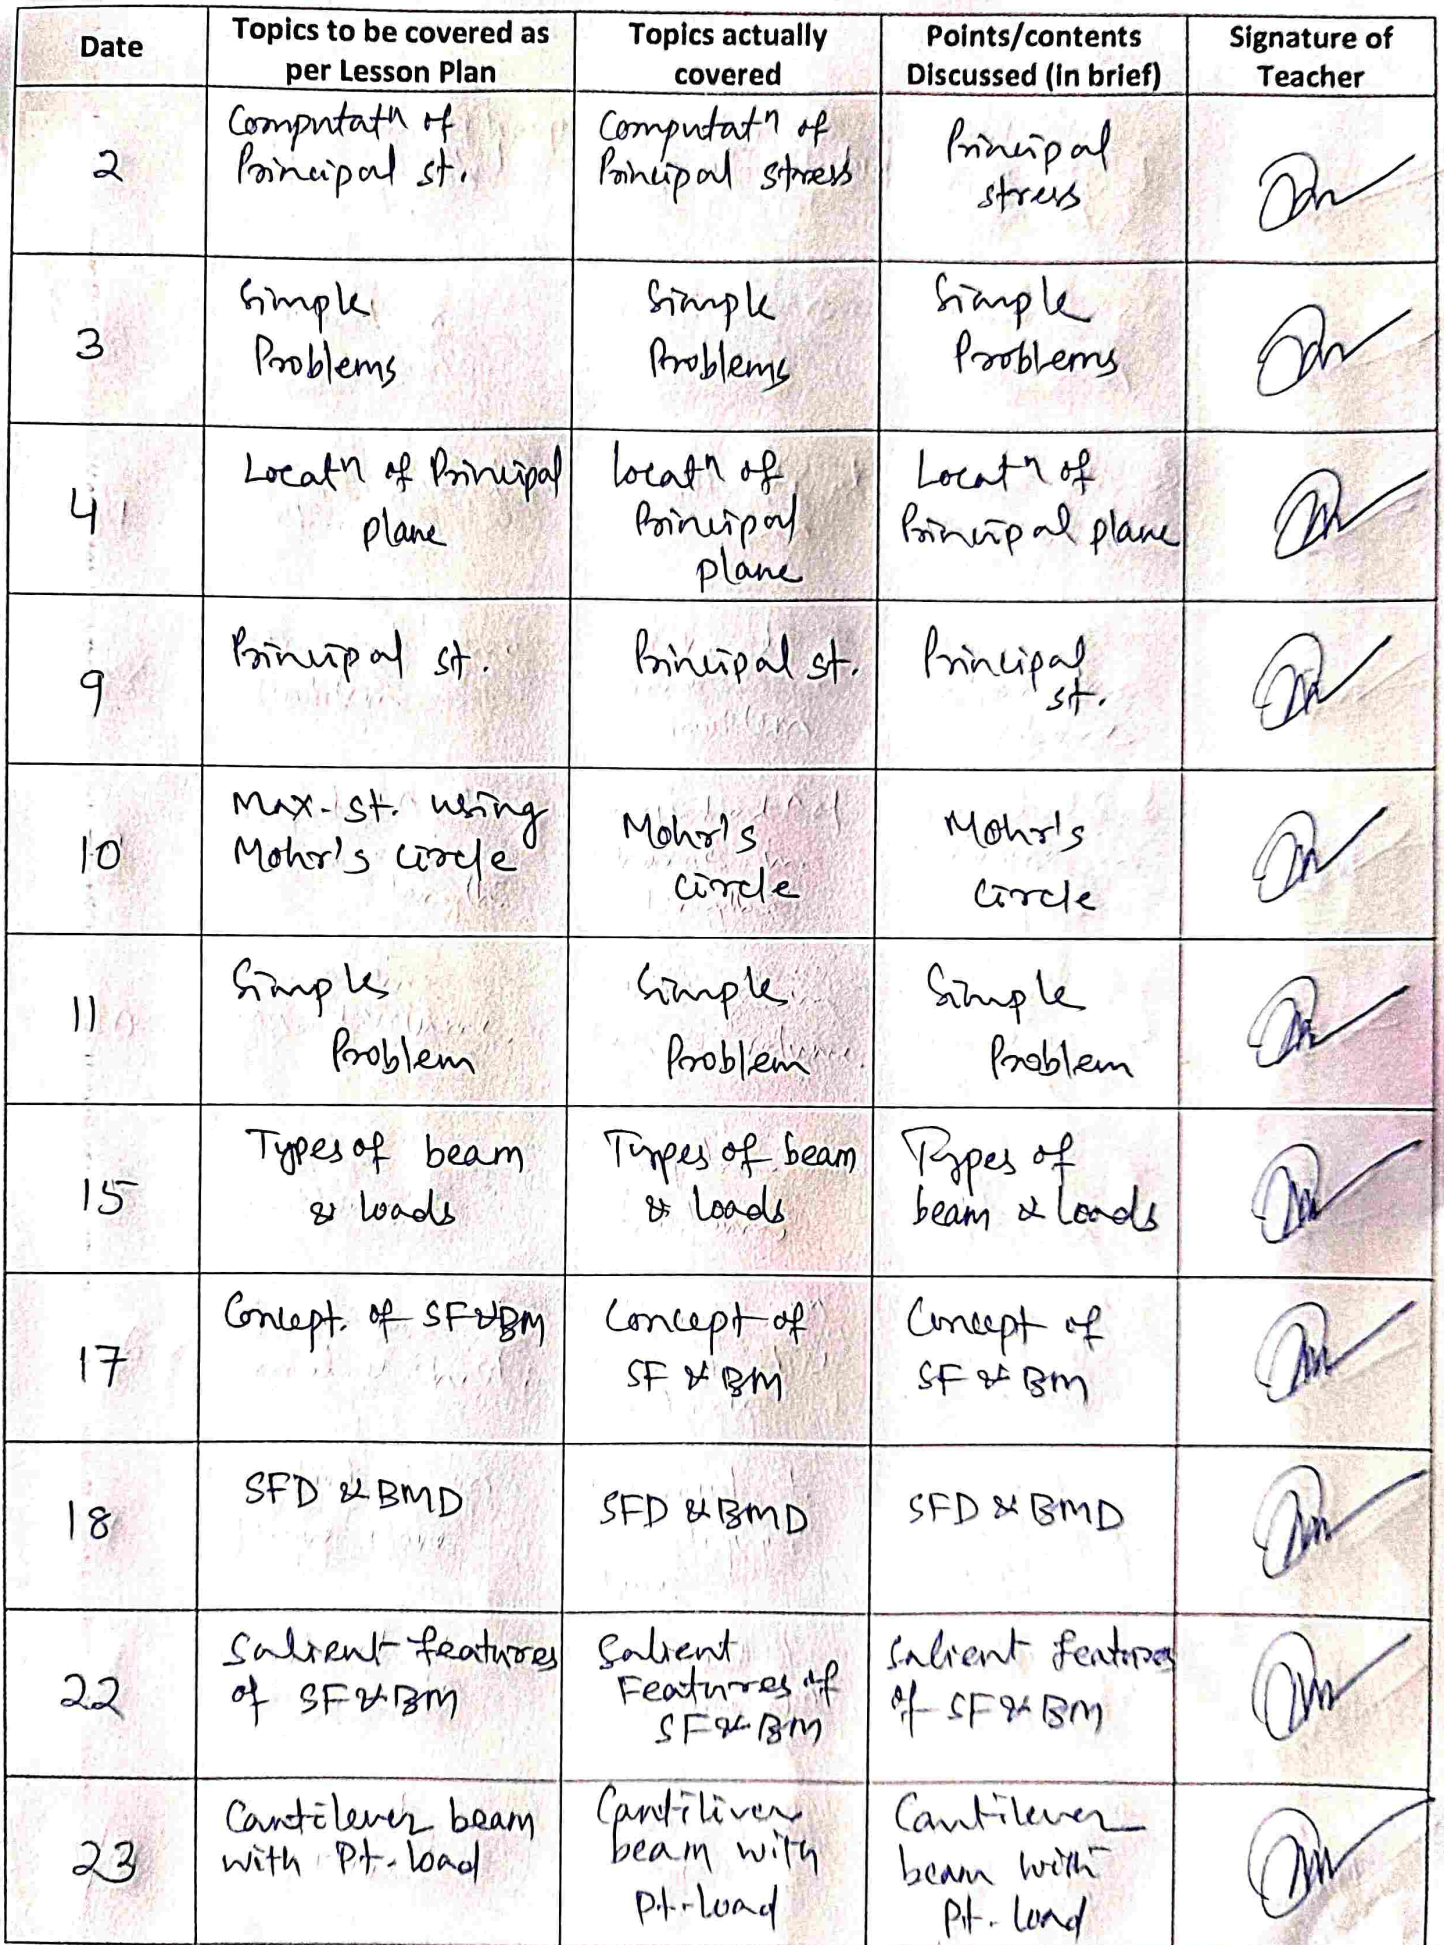 Date
Topics to be covered as
per Lesson Plan
Topics actually
covered
Points/contents
Discussed (in brief)
Signature of
Teacher
2
Computatn of
Principal st.
Computatn of
Principal stress
Principal
stress
3
Simple
Problems
Simple
Problems
Simple
Problems
4
Locatn of Principal
plane
locatn of
Principal
plane
Locatn of
Principal plane
9
Principal st.
Principal st.
Principal
st.
10
Max. st. using
Mohr's circle
Mohr's
circle
Mohr's
circle
11
Simple
Problem
Simple
Problem
Simple
Problem
15
Types of beam
& loads
Types of beam
& loads
Types of
beam & loads
17
Concept. of SF & BM
Concept of
SF & BM
Concept of
SF & BM
18
SFD & BMD
SFD & BMD
SFD & BMD
22
Salient features
of SF & BM
Salient
Features of
SF & BM
Salient features
of SF & BM
23
Cantilever beam
with Pt. load
Cantiliver
beam with
pt. load
Cantilever
beam with
pt. load